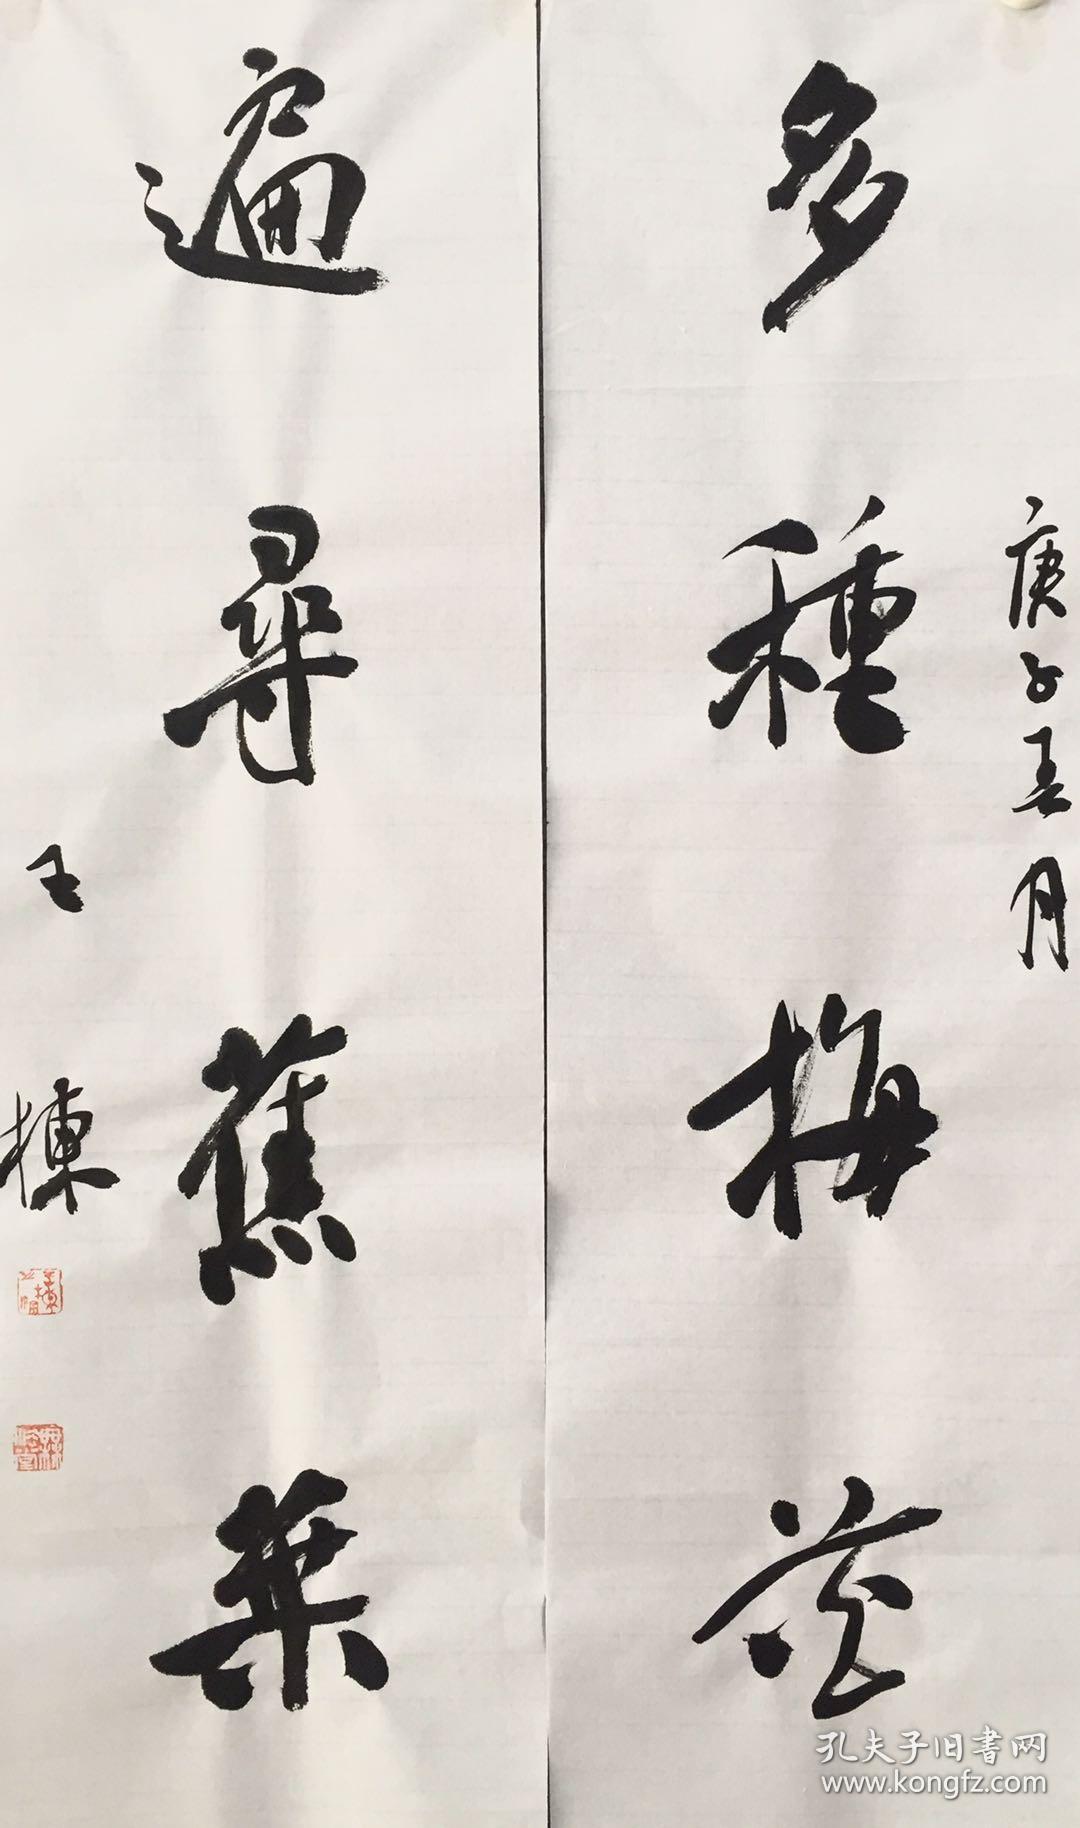 庚子春月
多種梅花
遍尋蕉葉
王棟
孔夫子旧书网
www.kongfz.com